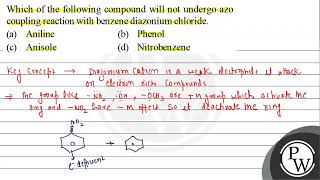 Which of the following compound will not undergo azo
coupling reaction with benzene diazonium chloride.
(a) Aniline (b) Phenol
(c) Anisole (d) Nitrobenzene
Key Concept → Diazonium cation is a weak electrophile it attack
on electron rich compounds
→ The group like -NO₂, -OH, -OCH₃ are +M group which activate the
ring and -NO₂ have -M effect so it deactivate the ring.
NO₂
e⁻ deficient
PW